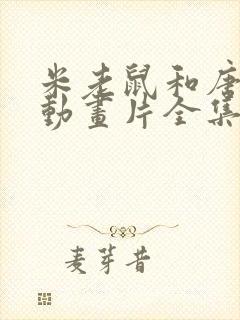 米老鼠和唐
動畫片全集
麦芽昔